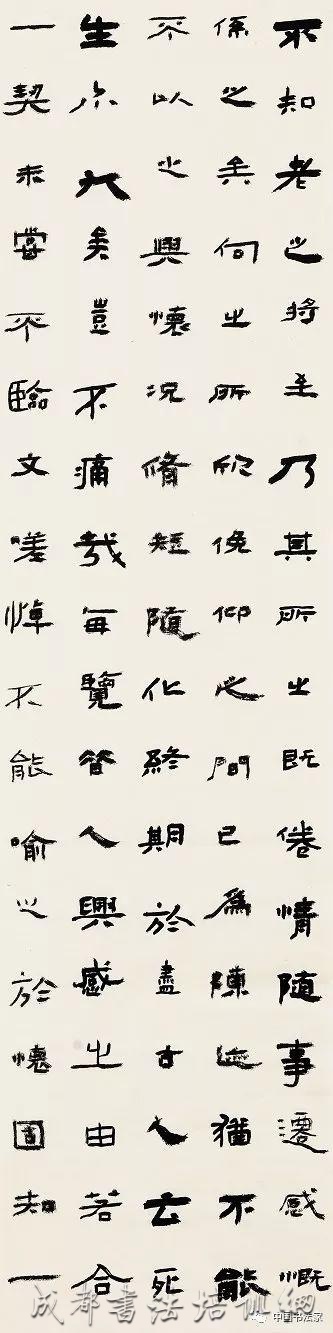 不知老之將至乃其所之既倦情隨事遷感慨
係之矣向之所欣俛仰之間已為陳迹猶不能
不以之興懷況脩短隨化終期於盡古人云死
生亦大矣豈不痛哉每覽昔人興感之由若合
一契未嘗不臨文嗟悼不能喻之於懷固知一
成都書法培訓網
中国书法家